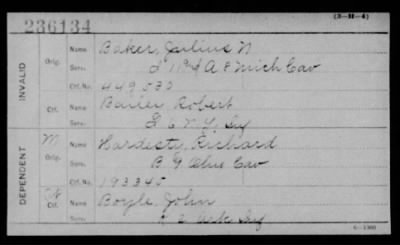 (3-M-4)
236134
INVALID
Orig.
Name Baker, Julius N
Serv. L 1 & A & Mich Cav
Ctf. No. 449532
Ctf.
Name Bailer Robert
Serv. G 6 N.Y. Inf
DEPENDENT
Orig.
Name Hardesty, Richard
Serv. B 9 Ohio Cav
Ctf. No. 193345
Ctf.
Name Boyle, John
Serv. K 2 Ark Inf